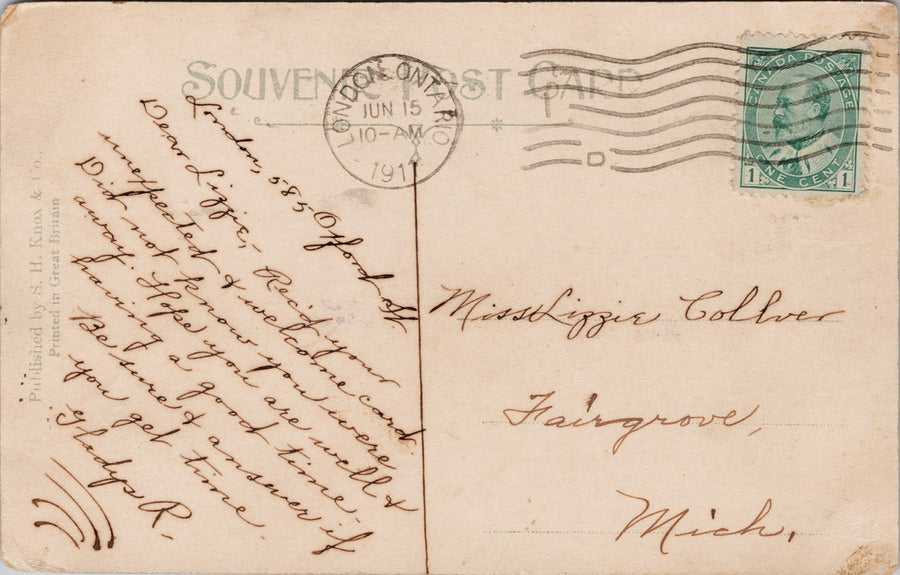 SOUVENIR POST CARD
LONDON, ONTARIO
JUN 15
10-AM
1911
D
CANADA POSTAGE
ONE CENT
1 1
Published by S. H. Knox & Co.
Printed in Great Britain
London, 585 Offord St
Dear Lizzie, Recid your
unexpected & welcome card.
Did not know you were
away. Hope you are well &
having a good time.
Be sure & answer if
you get time
Gladys R.
Miss Lizzie Collver
Fairgrove,
Mich.